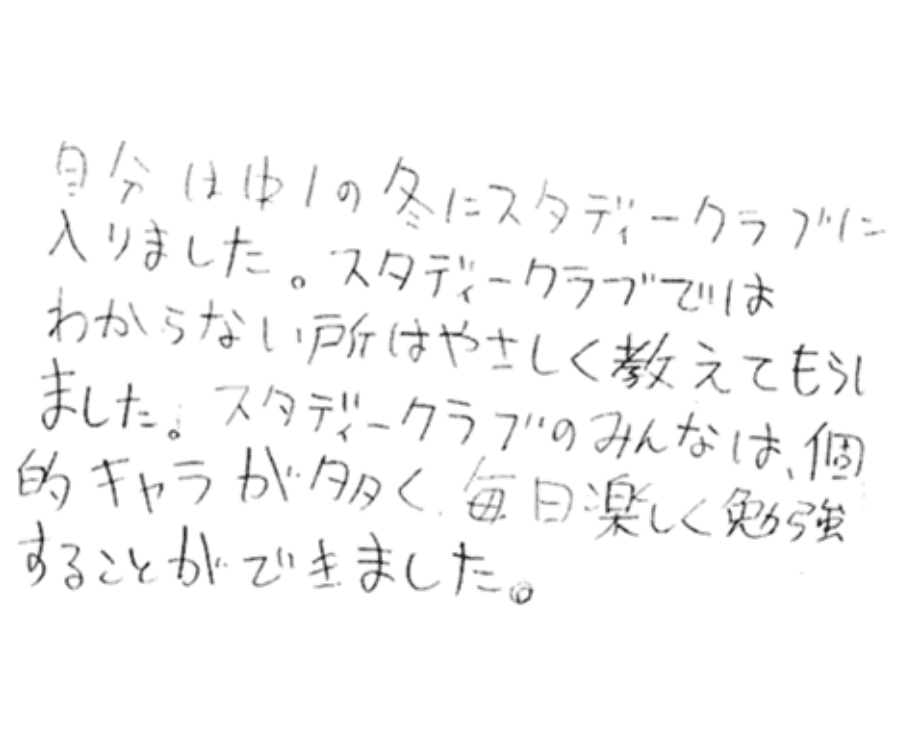 自分は中1の冬にスタディークラブに
入りました。スタディークラブでは
わからない所はやさしく教えてもらい
ました。スタディークラブのみんなは、個
的キャラが多く、毎日楽しく勉強
することができました。